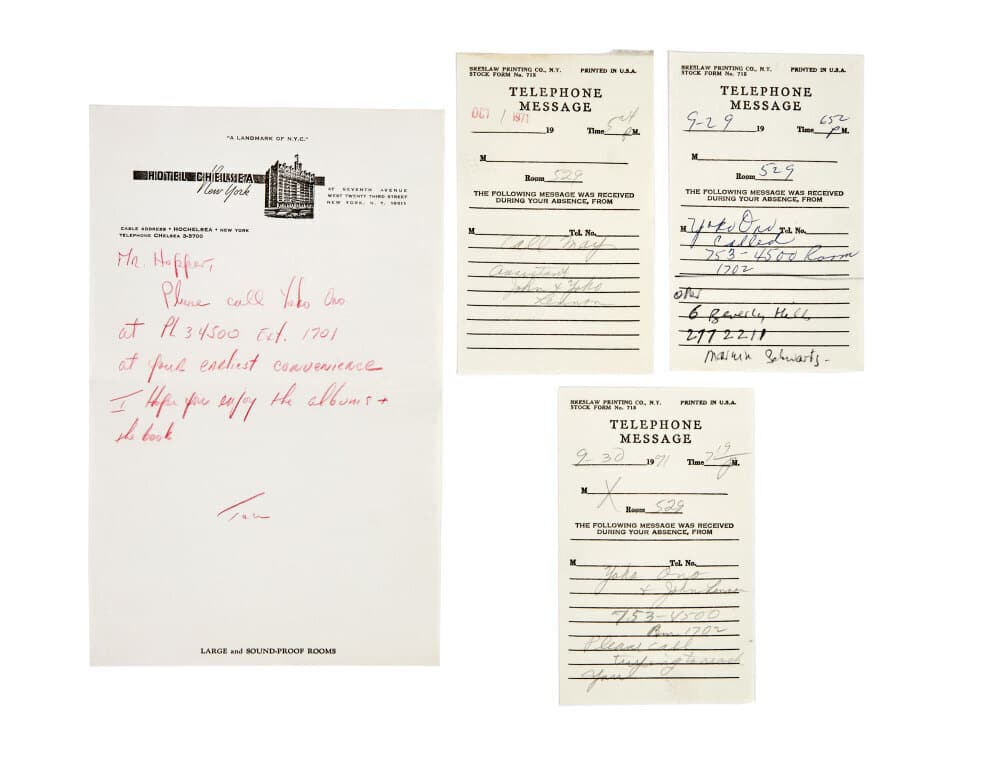 "A LANDMARK OF N.Y.C."
HOTEL CHELSEA
New York
AT SEVENTH AVENUE
WEST TWENTY THIRD STREET
NEW YORK, N. Y. 10011
CABLE ADDRESS • HOCHELSEA • NEW YORK
TELEPHONE CHELSEA 3-3700
Mr. Hopper,
Please call Yoko Ono
at PL 34500 Ext. 1701
at your earliest convenience
I Hope you enjoy the albums +
the book
LARGE and SOUND-PROOF ROOMS
BRESLAW PRINTING CO., N.Y. PRINTED IN U.S.A.
STOCK FORM No. 715
TELEPHONE
MESSAGE
OCT 1 1971
19 Time 5 24 P M.
M
Room 529
THE FOLLOWING MESSAGE WAS RECEIVED
DURING YOUR ABSENCE, FROM
M Tel. No.
Call May
Assistant
John & Yoko
Lennon
BRESLAW PRINTING CO., N.Y. PRINTED IN U.S.A.
STOCK FORM No. 715
TELEPHONE
MESSAGE
9-29 19 Time 652 P M.
M
Room 529
THE FOLLOWING MESSAGE WAS RECEIVED
DURING YOUR ABSENCE, FROM
M Yoko Ono Tel. No.
Called
753-4500 Room
1702
6 Beverly Hills
2772211
Marvin Schwartz-
BRESLAW PRINTING CO., N.Y. PRINTED IN U.S.A.
STOCK FORM No. 715
TELEPHONE
MESSAGE
9-30 1971 Time 7 19 P M.
M X
Room 529
THE FOLLOWING MESSAGE WAS RECEIVED
DURING YOUR ABSENCE, FROM
M Tel. No.
Yoko Ono
+ John Lennon
753-4500
Rm 1702
Please call
trying to reach
you